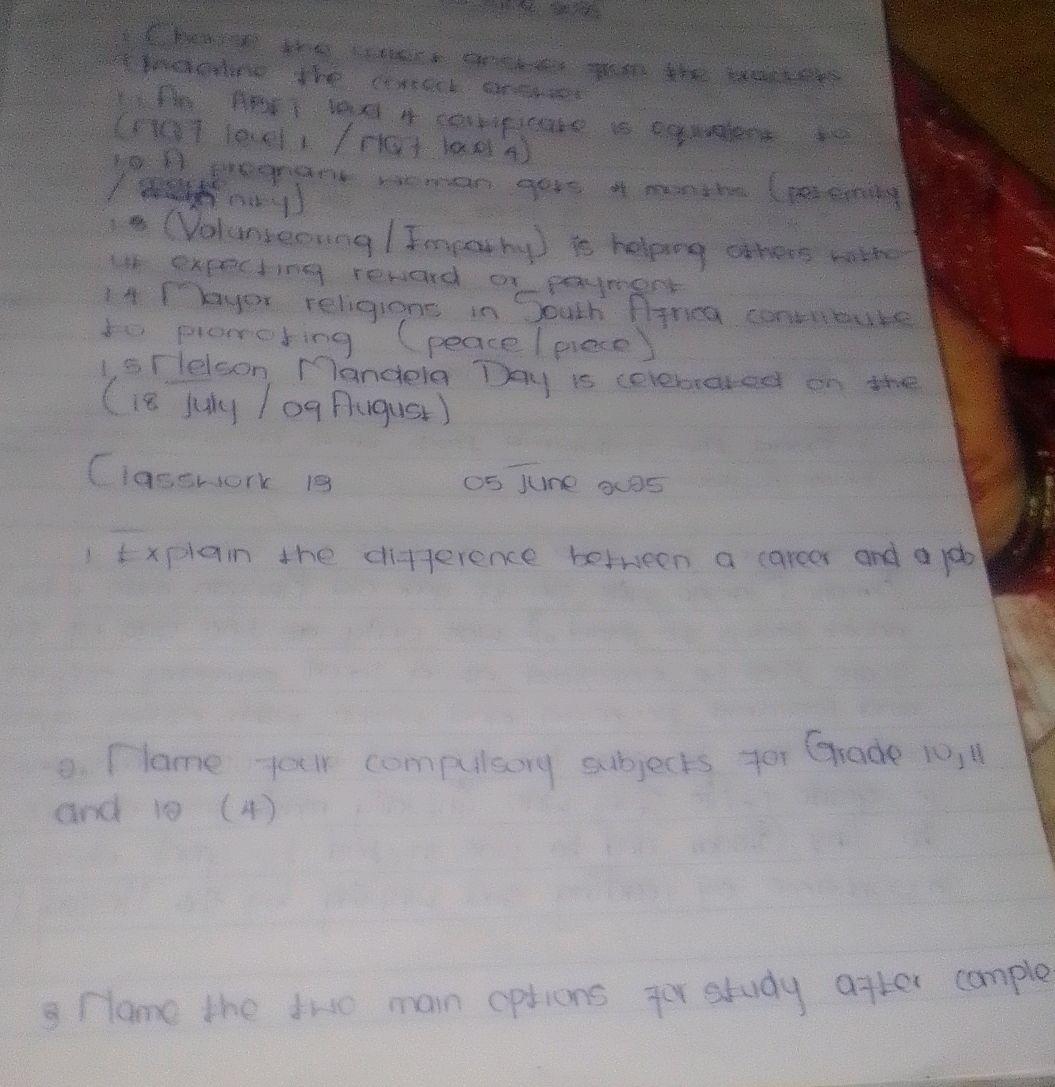 Choose the correct answer from the brackets
Underline the correct answer
1.1 An ABET level 4 certificate is equivalent to
(NQF level 1 / NQF level 4)
A pregnant woman gets 4 months (paternity
/ nity)
(Volunteering / Impathy) is helping others witho
ut expecting reward or payment
1.4 Mayor religions in South Africa contribute
to promoting (peace / piece)
1.5 Nelson Mandela Day is celebrated on the
(18 July / 09 August)
Classwork 05 June 2025
1 Explain the difference between a career and a job
2. Name four compulsory subjects for Grade 10, 11
and 12 (4)
3 Name the two main options for study after comple